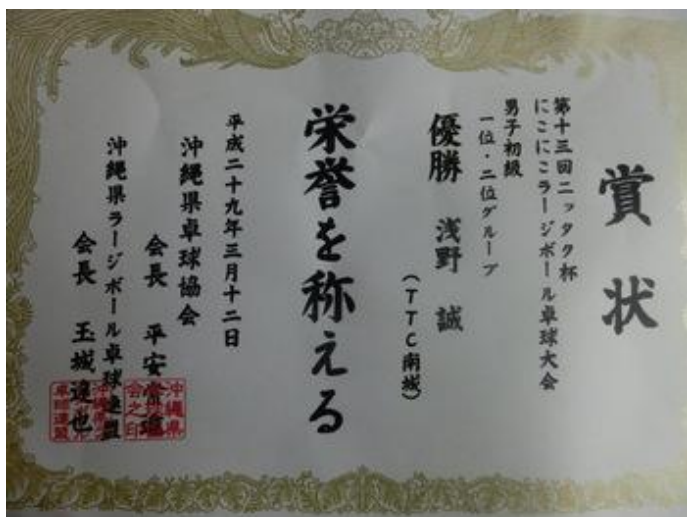 賞状
第十三回ニッタク杯
にこにこラージボール卓球大会
男子初級
一位・二位グループ
優勝 浅野 誠
(TTC南城)
栄誉を称える
平成二十九年三月十二日
沖縄県卓球協会
会長 平安常
沖縄県ラージボール卓球連盟
会長 玉城 也